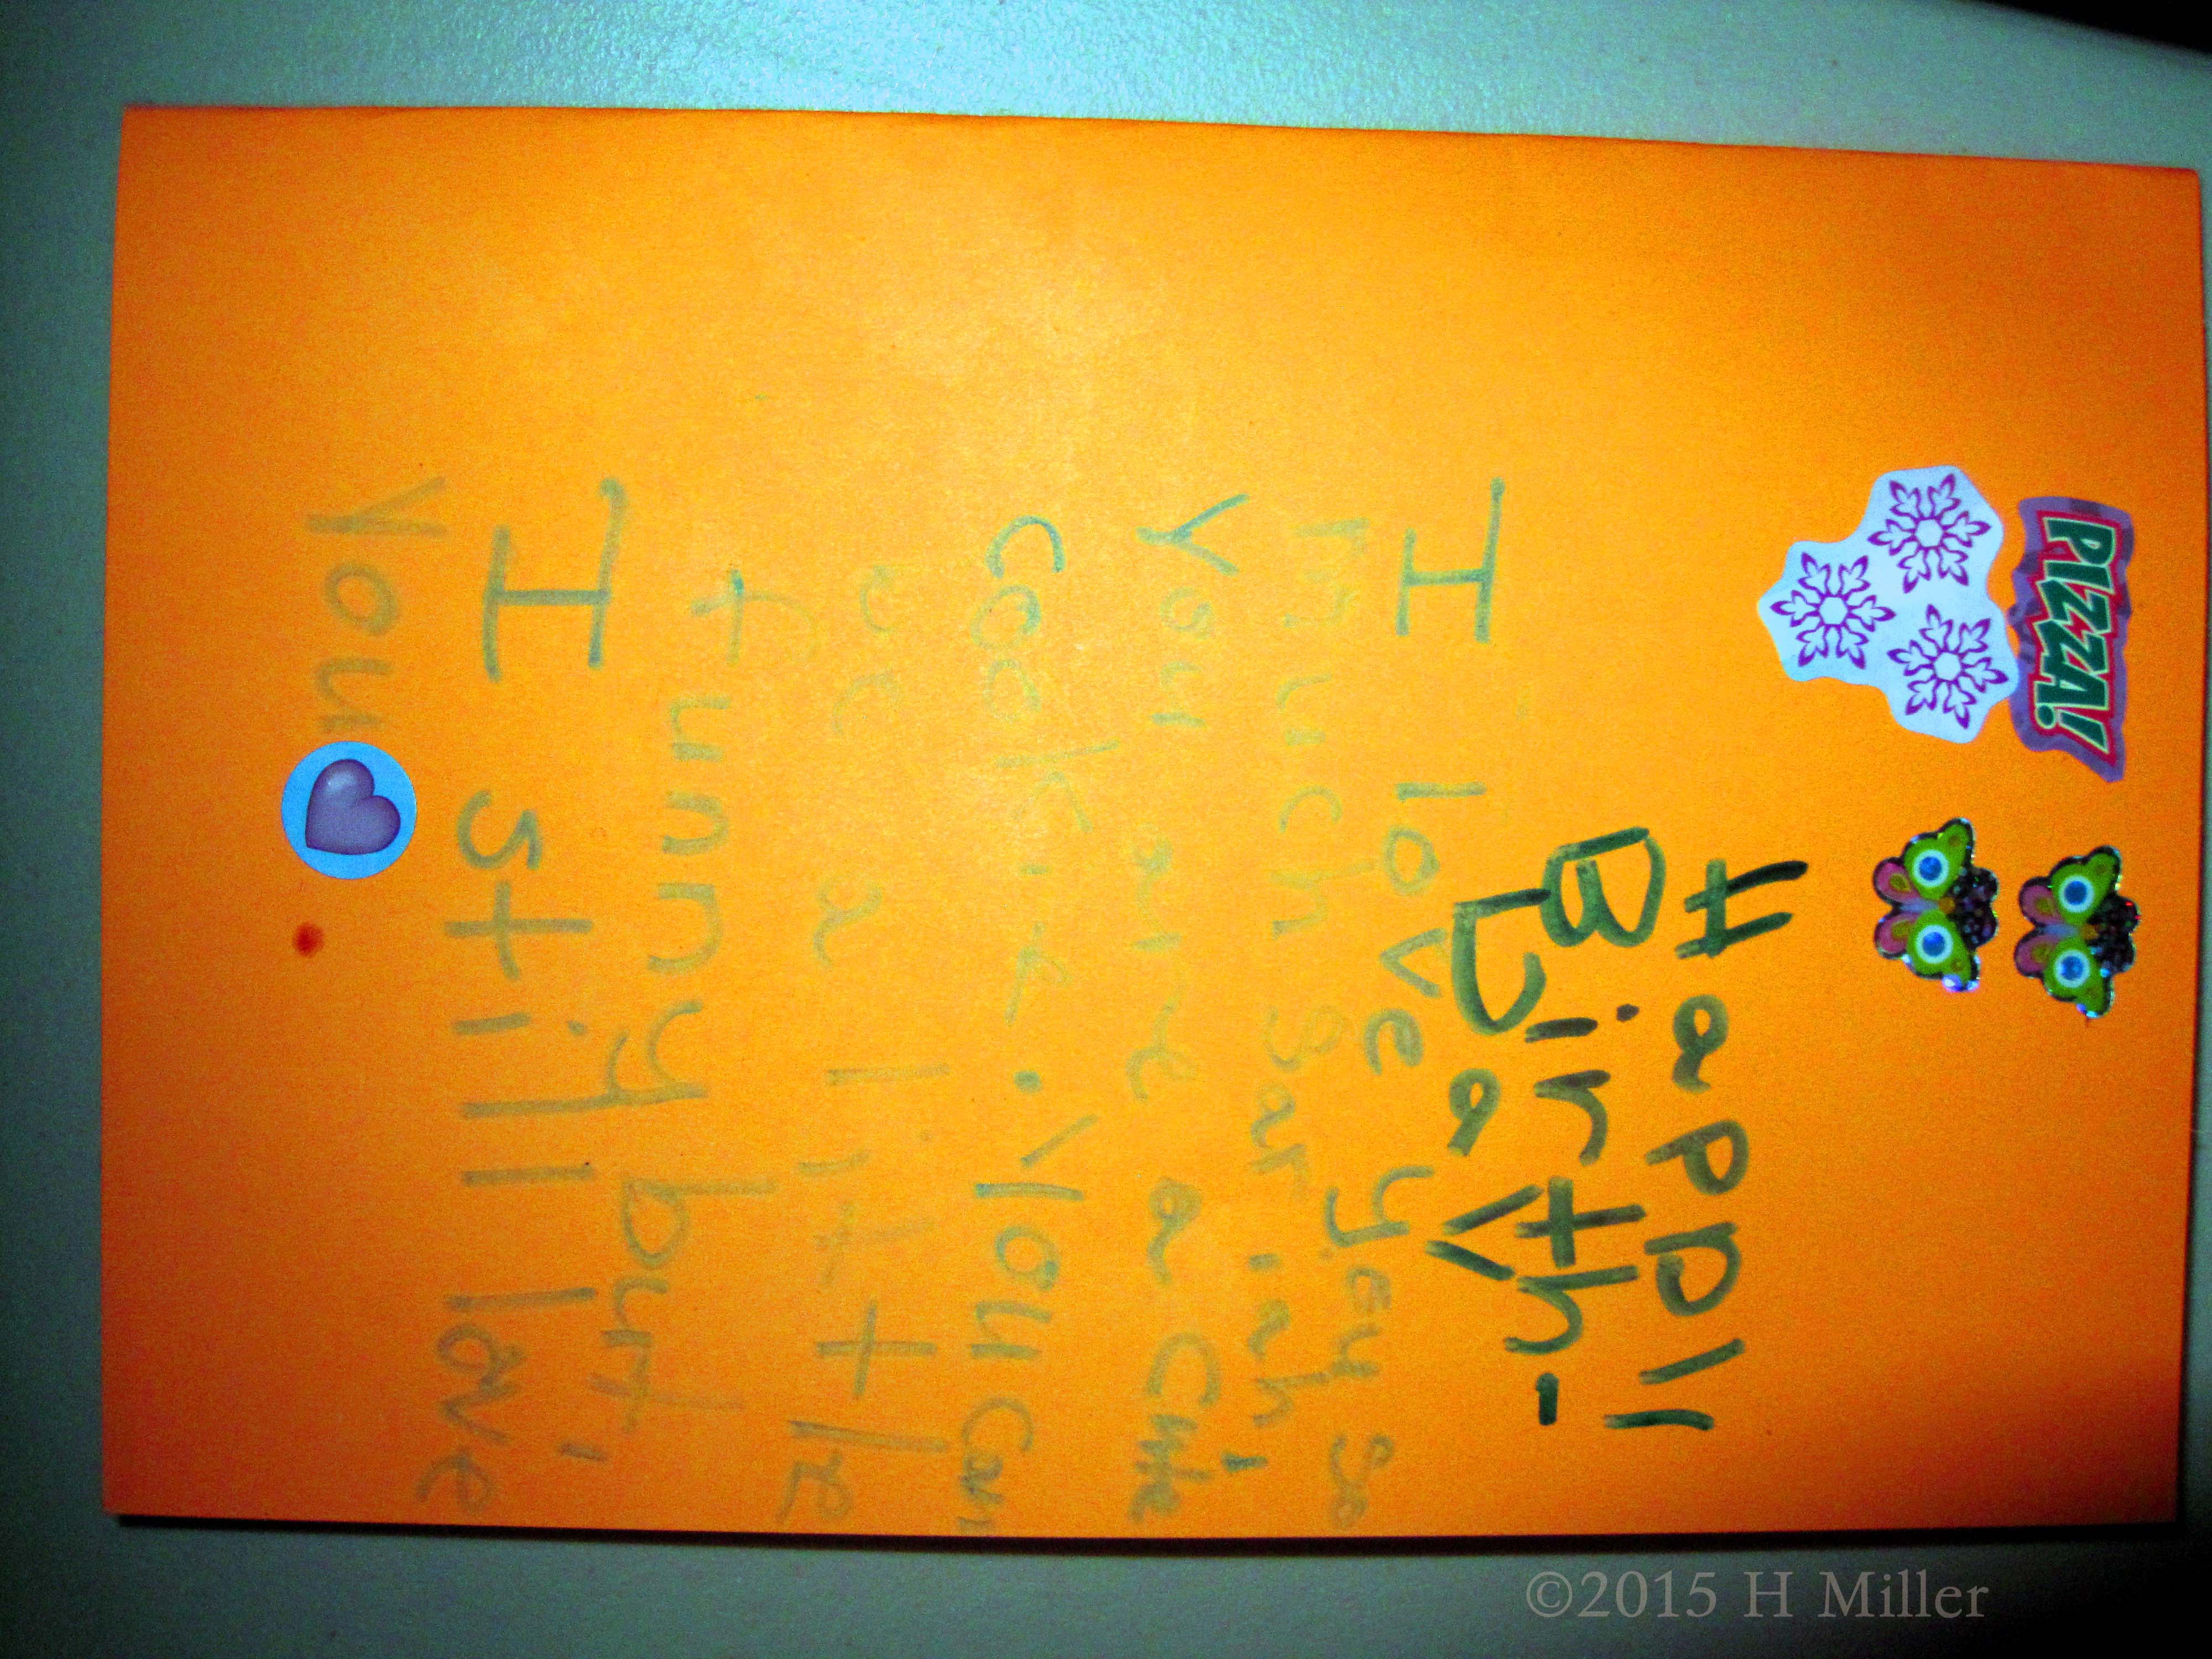 PIZZA!
Happy
Birth-
Day
I love you so
much Sariah!
You are a Cute
Cookie. You can
be a little
funny but,
I still love
you
©2015 H Miller